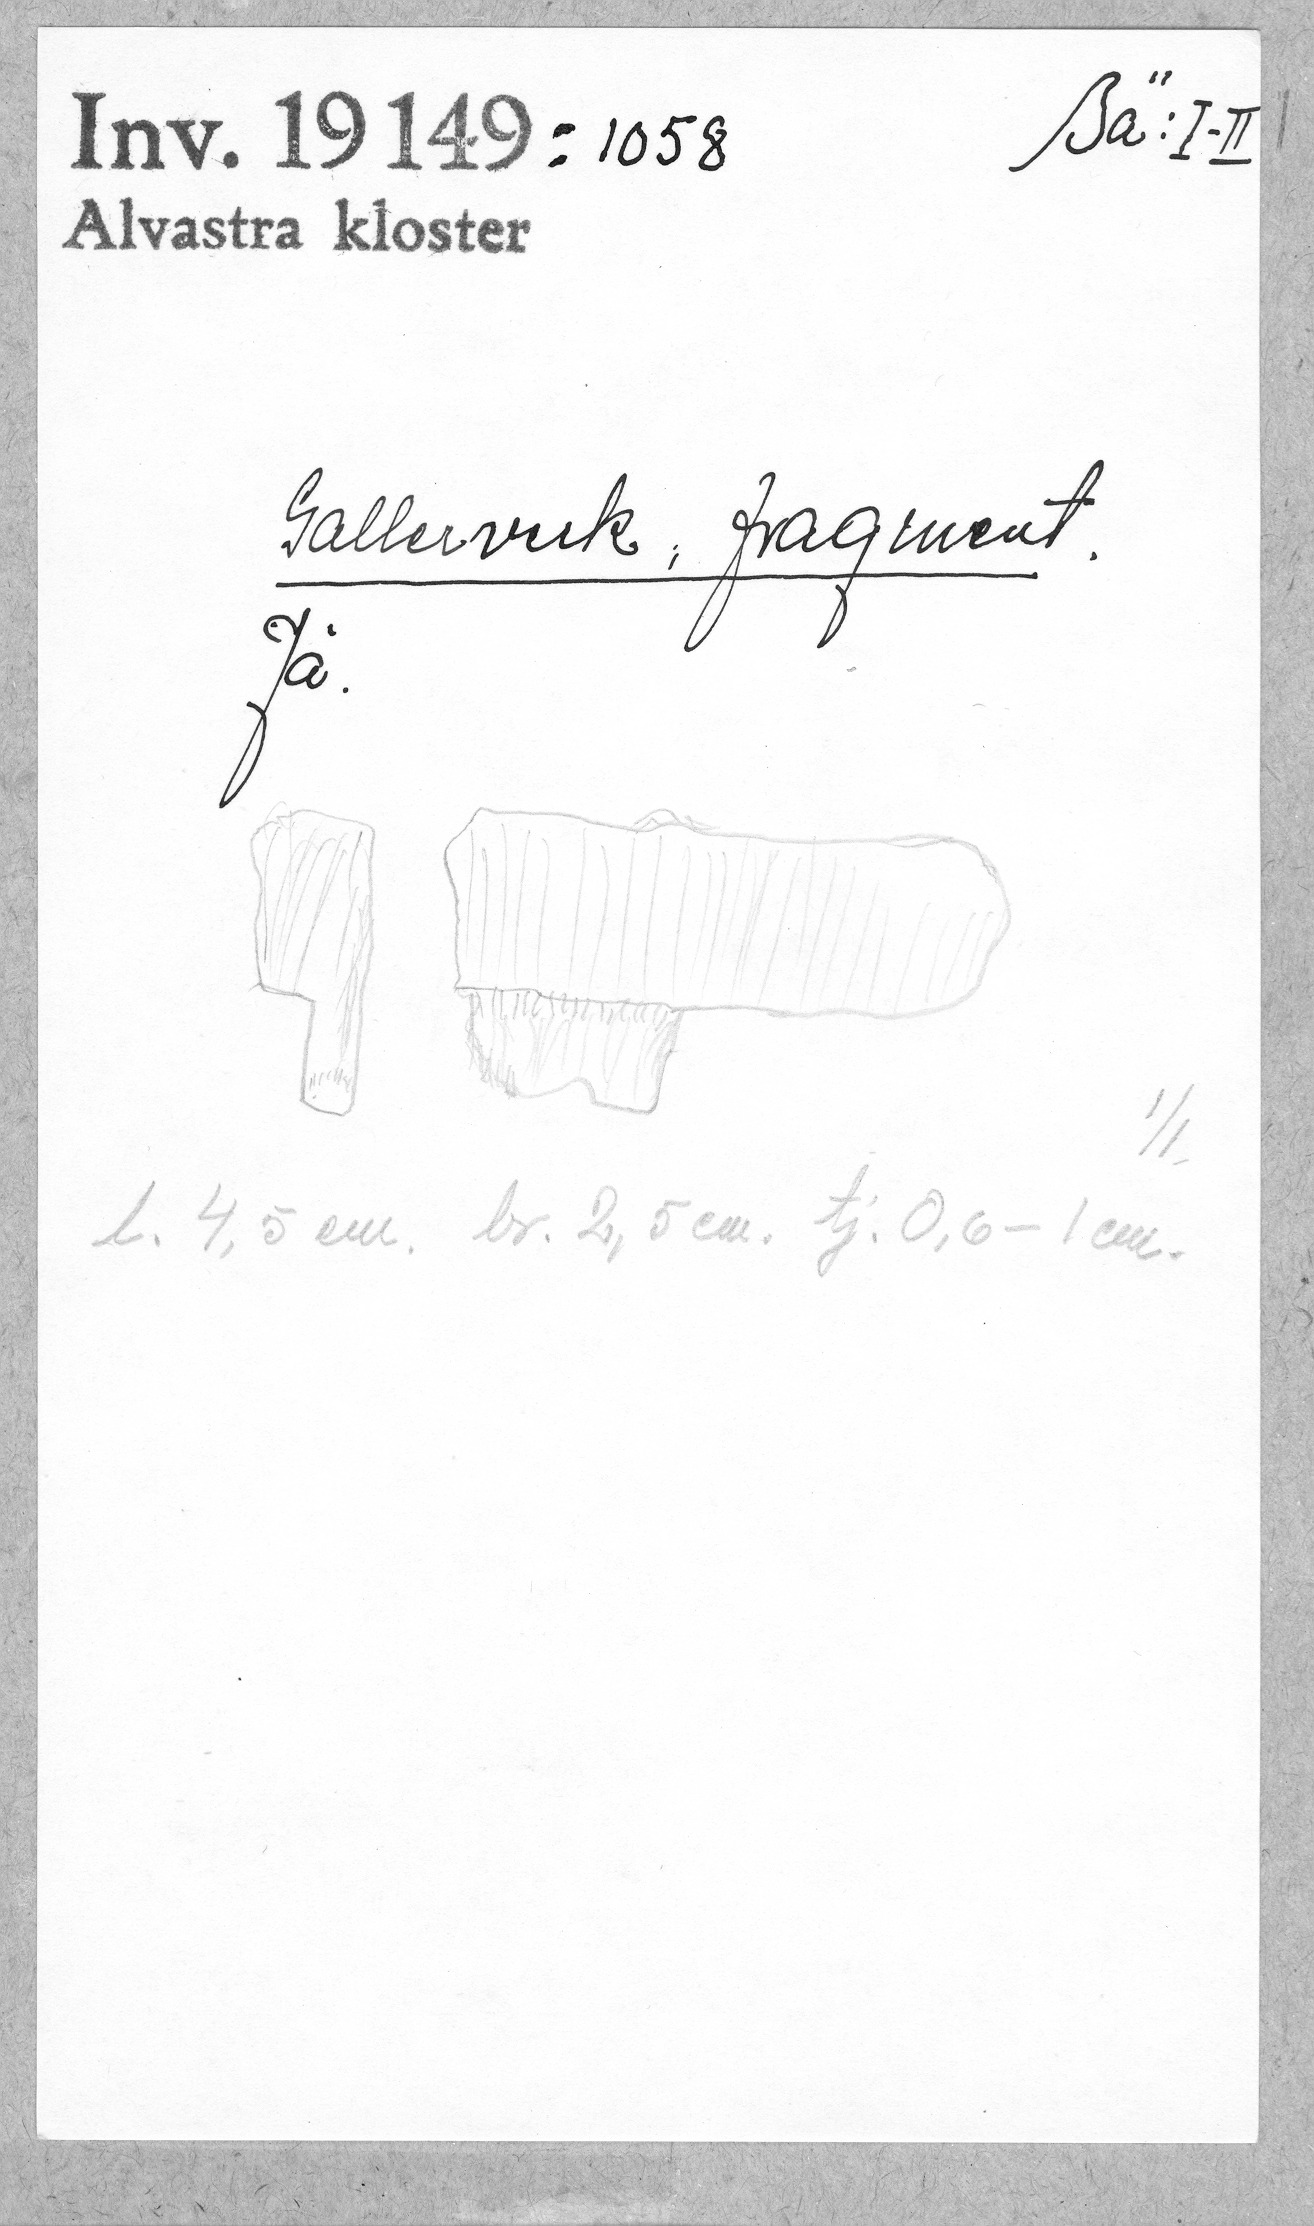 Inv. 19149:1058
Bä: I-II
Alvastra kloster
Gallerverk, fragment.
Jä.
1/1.
l. 4,5 cm. br. 2,5 cm. tj. 0,6 – 1 cm.